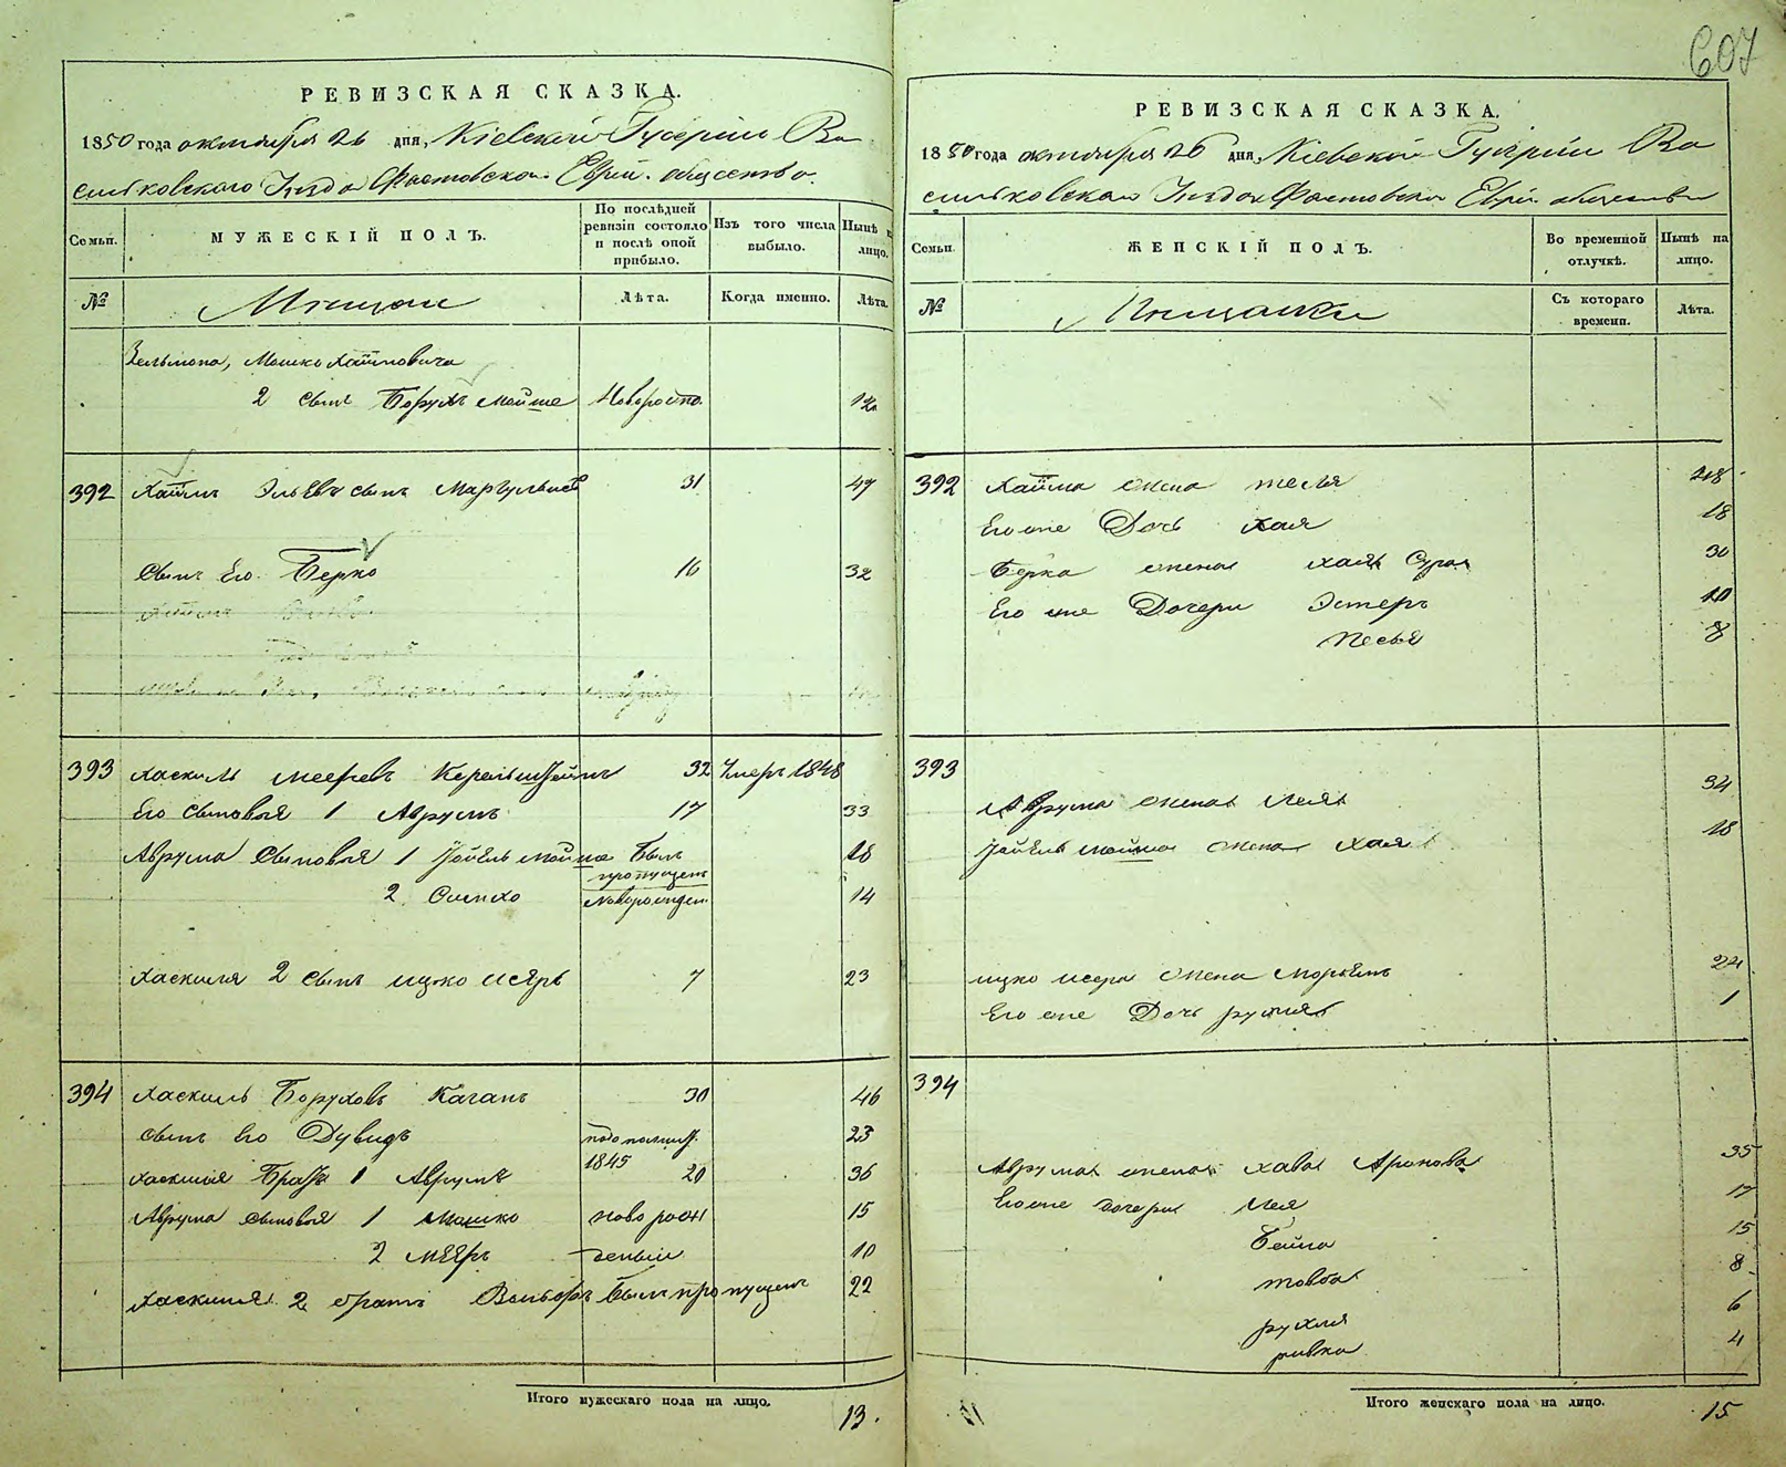 607
РЕВИЗСКАЯ СКАЗКА.
1850 года октября 26 дня, Кіевской Губерніи Ва
сильковского Уезда Фастовскаго Еврей. общества.
Семьи.
МУЖЕСКІЙ ПОЛЪ.
По послѣдней ревизіи состояло и послѣ оной прибыло.
Изъ того числа выбыло.
Нынѣ на лицо.
№
Мещане
Лѣта.
Когда именно.
Лѣта.
Зельмана, Мошко Хаимовича
2 сынъ Борухъ Мойше Новорожд. 12
392 Хаимъ Эльевъ сынъ Маргулисъ 31 47
Сынъ Его Берко 16 32
393 Хаскиль Мееровъ Керельштейнъ 32 Умеръ 1848
Его Сыновья 1 Аврумъ 17 33
Аврума Сыновья 1 Йойель Мойше былъ пропущенъ 18
2 Симхо Новорожден. 14
Хаскиля 2 сынъ Ицко Исеръ 7 23
394 Хаскиль Боруховъ Каганъ 30 46
Сынъ Его Дувидъ 1845 23
Хаскиля Братъ 1 Аврумъ 20 36
Аврума Сыновья 1 Мошко новорож 15
2 Мееръ деныи 10
Хаскиля 2 братъ Вольфъ былъ пропущенъ 22
Итого мужескаго пола на лицо.
13.
РЕВИЗСКАЯ СКАЗКА.
1850 года октября 26 дня, Кіевской Губерніи Ва
сильковскаго Уезда Фастовскаго Еврей. общества
Семьи.
ЖЕНСКІЙ ПОЛЪ.
Во временной отлучкѣ.
Нынѣ на лицо.
№
Мещанки
Съ котораго времени.
Лѣта.
392 Хаима жена Тесля 48
Его же Дочь Хая 18
Берка жена Хая Сура 30
Его же Дочери Эстеръ 10
Песья 8
393
Аврума жена Лея 34
Йойель Мойше жена Хая 18
Ицко Исера жена Марьемъ 24
Его же Дочь Рухля 1
394
Аврума жена Хава Аронова 35
Его же дочери Лея 17
Бейла 15
Товба 8
Рухля 6
Ривка 4
Итого женскаго пола на лицо.
15